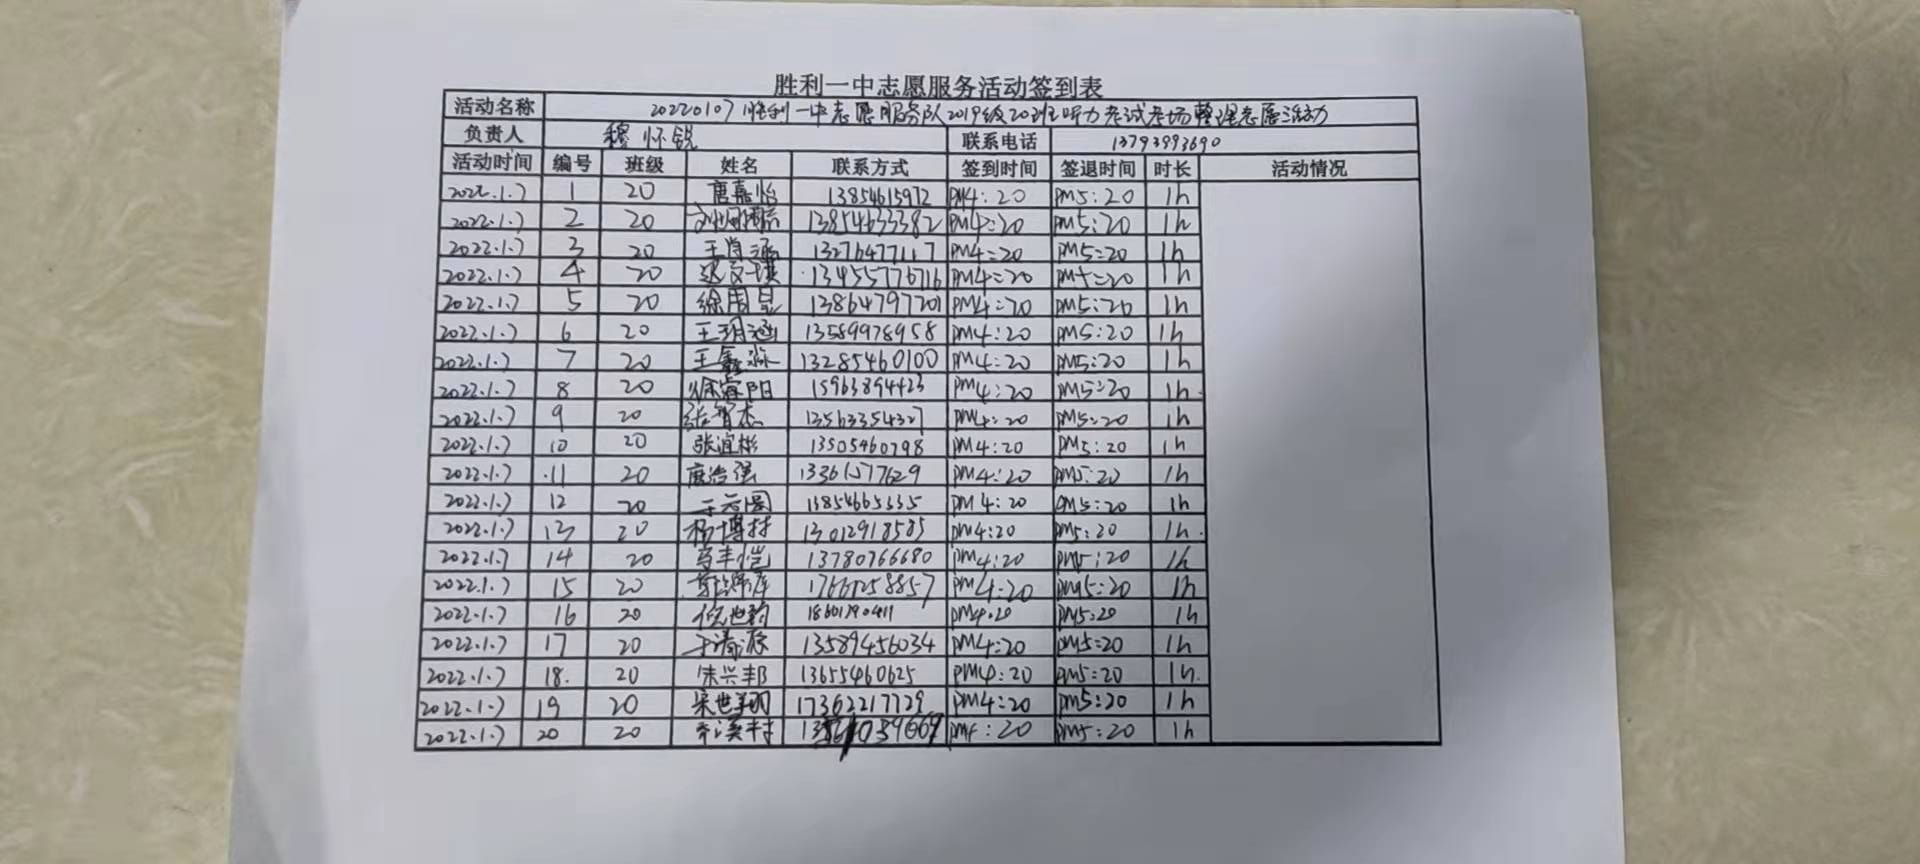 胜利一中志愿服务活动签到表
活动名称 20220107胜利一中志愿服务队2019级20班听力考试考场整理志愿活动
负责人 穆怀锐 联系电话 13793993690
活动时间 编号 班级 姓名 联系方式 签到时间 签退时间 时长 活动情况
2022.1.7 1 20 唐嘉怡 13854615972 PM4:20 PM5:20 1h
2022.1.7 2 20 13854633382 PM4:20 PM5:20 1h
2022.1.7 3 20 王肖涵 13276477117 PM4:20 PM5:20 1h
2022.1.7 4 20 13455776716 PM4:20 PM5:20 1h
2022.1.7 5 20 徐周昱 13864797201 PM4:20 PM5:20 1h
2022.1.7 6 20 王玥涵 13589978958 PM4:20 PM5:20 1h
2022.1.7 7 20 王鑫淼 13285460100 PM4:20 PM5:20 1h
2022.1.7 8 20 阳 15963894423 PM4:20 PM5:20 1h
2022.1.7 9 20 张智杰 13563354327 PM4:20 PM5:20 1h
2022.1.7 10 20 张谊彬 13505460798 PM4:20 PM5:20 1h
2022.1.7 11 20 13361577629 PM4:20 PM5:20 1h
2022.1.7 12 20 13854665335 PM4:20 PM5:20 1h
2022.1.7 13 20 杨博村 13012918585 PM4:20 PM5:20 1h
2022.1.7 14 20 马丰恺 13780766680 PM4:20 PM5:20 1h
2022.1.7 15 20 17667258857 PM4:20 PM5:20 1h
2022.1.7 16 20 倪世韵 PM4:20 PM5:20 1h
2022.1.7 17 20 于清源 13589456034 PM4:20 PM5:20 1h
2022.1.7 18. 20 朱兴邦 13655460625 PM4:20 PM5:20 1h.
2022.1.7 19 20 宋世翔 17362217729 PM4:20 PM5:20 1h
2022.1.7 20 20 PM4:20 PM5:20 1h